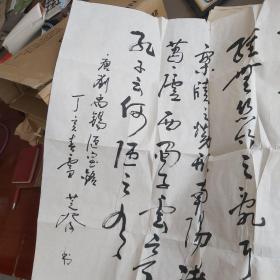 經無絲竹之亂耳
案牘之勞形南陽諸
葛廬西蜀子雲亭
孔子云何陋之有
唐劉禹錫陋室銘
丁亥春雪 書